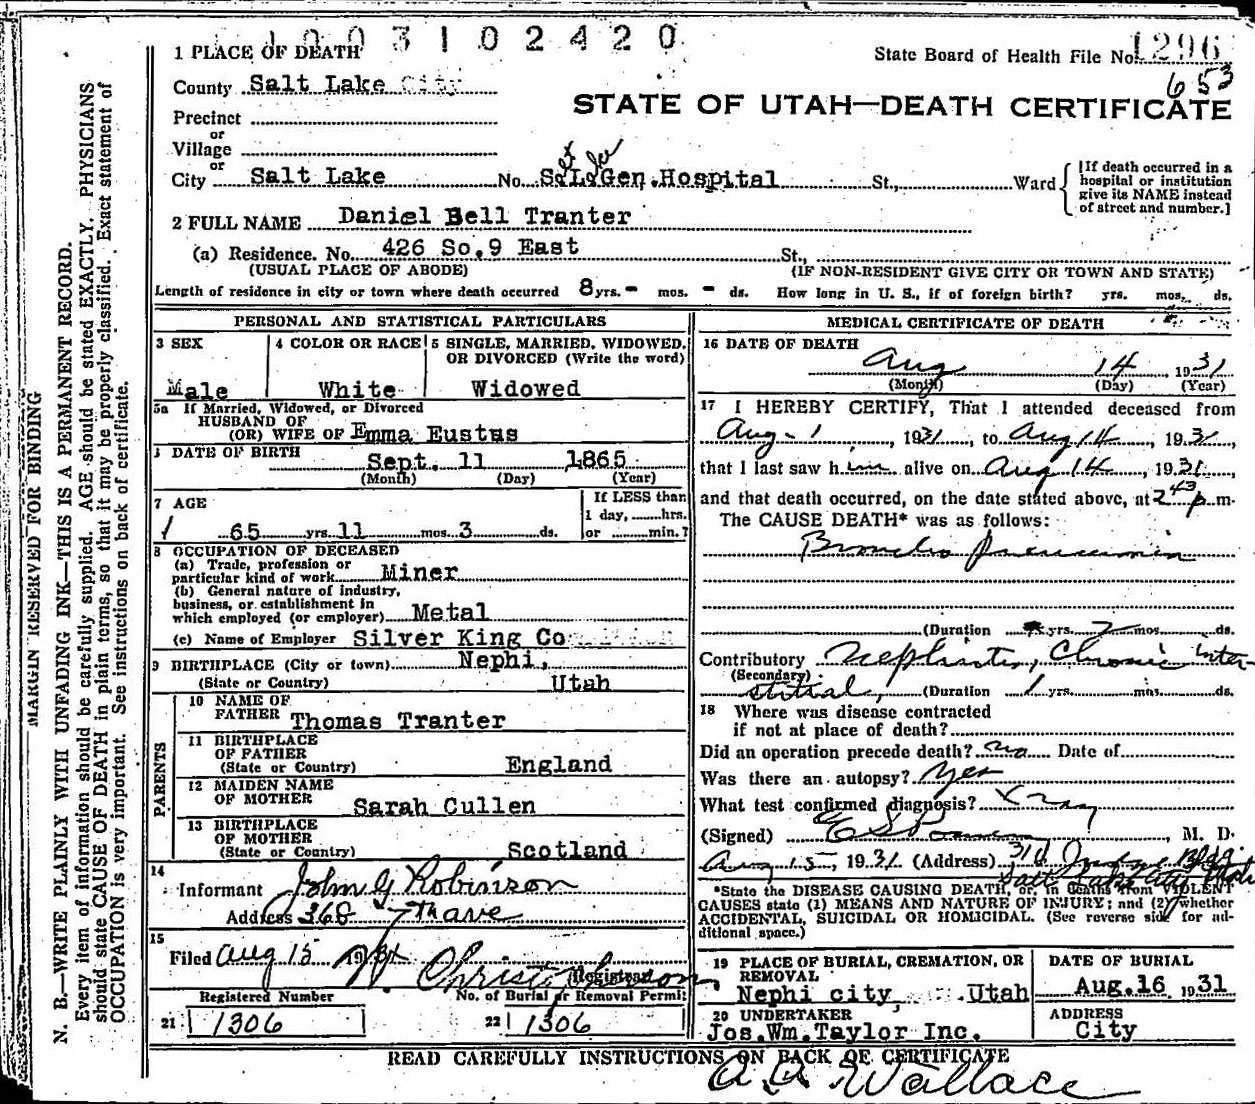 1003102420
1 PLACE OF DEATH
State Board of Health File No. 1296
653
County Salt Lake City
STATE OF UTAH—DEATH CERTIFICATE
Precinct
or
Village
or
City Salt Lake No. S. L. Gen. Hospital St., Ward
[If death occurred in a hospital or institution give its NAME instead of street and number.]
2 FULL NAME Daniel Bell Tranter
(a) Residence. No. 426 So. 9 East St.,
(USUAL PLACE OF ABODE) (IF NON-RESIDENT GIVE CITY OR TOWN AND STATE)
Length of residence in city or town where death occurred 8 yrs. - mos. - ds. How long in U. S., if of foreign birth? yrs. mos. ds.
PERSONAL AND STATISTICAL PARTICULARS
3 SEX
Male
4 COLOR OR RACE
White
5 SINGLE, MARRIED, WIDOWED, OR DIVORCED (Write the word)
Widowed
5a If Married, Widowed, or Divorced
HUSBAND OF
(OR) WIFE OF Emma Eustus
DATE OF BIRTH Sept. 11 1865
(Month) (Day) (Year)
7 AGE
65 yrs. 11 mos. 3 ds.
If LESS than
1 day, hrs.
or min.?
8 OCCUPATION OF DECEASED
(a) Trade, profession or
particular kind of work Miner
(b) General nature of industry,
business, or establishment in
which employed (or employer) Metal
(c) Name of Employer Silver King Co
9 BIRTHPLACE (City or town) Nephi,
(State or Country) Utah
PARENTS
10 NAME OF
FATHER Thomas Tranter
11 BIRTHPLACE
OF FATHER
(State or Country) England
12 MAIDEN NAME
OF MOTHER Sarah Cullen
13 BIRTHPLACE
OF MOTHER
(State or Country) Scotland
14
Informant John G Robinson
Address 368 7th ave
15
Filed Aug 15 1931
Registrar
Registered Number
21 1306
No. of Burial or Removal Permit
22 1306
MEDICAL CERTIFICATE OF DEATH
16 DATE OF DEATH
Aug 14, 1931
(Month) (Day) (Year)
17 I HEREBY CERTIFY, That I attended deceased from
Aug - 1, 1931, to Aug 14, 1931,
that I last saw him alive on Aug 14, 1931,
and that death occurred, on the date stated above, at 2 43 p m.
The CAUSE DEATH* was as follows:
Broncho pneumonia
(Duration yrs. 2 mos. ds.
Contributory Nephritis, Chronic inter-
(Secondary)
stitial, (Duration 1 yrs. mos. ds.
18 Where was disease contracted
if not at place of death?
Did an operation precede death? no Date of
Was there an autopsy? Yes
What test confirmed diagnosis? X ray
(Signed) M. D.
Aug 15, 1931 (Address) Salt Lake City Utah
*State the DISEASE CAUSING DEATH, or, in deaths from VIOLENT
CAUSES state (1) MEANS AND NATURE OF INJURY; and (2) whether
ACCIDENTAL, SUICIDAL OR HOMICIDAL. (See reverse side for ad-
ditional space.)
19 PLACE OF BURIAL, CREMATION, OR
REMOVAL
Nephi city, Utah
DATE OF BURIAL
Aug. 16 1931
20 UNDERTAKER
Jos. Wm. Taylor Inc.
ADDRESS
City
READ CAREFULLY INSTRUCTIONS ON BACK OF CERTIFICATE
A. A. Wallace
MARGIN RESERVED FOR BINDING
N. B.—WRITE PLAINLY WITH UNFADING INK—THIS IS A PERMANENT RECORD.
Every item of information should be carefully supplied. AGE should be stated EXACTLY. PHYSICIANS
should state CAUSE OF DEATH in plain terms, so that it may be properly classified. Exact statement of
OCCUPATION is very important. See instructions on back of certificate.